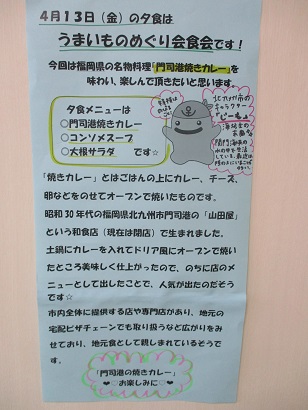 4月13日（金）の夕食は
うまいものめぐり会食会です！
今回は福岡県の名物料理「門司港焼きカレー」を
味わい、楽しんで頂きたいと思います。
夕食メニューは
○門司港焼きカレー
○コンソメスープ
○大根サラダ　です☆
北九州市の
キャラクター
「焼きカレー」とはごはんの上にカレー、チーズ、
卵などをのせてオーブンで焼いたものです。
昭和30年代の福岡県北九州市門司港の「山田屋」
という和食店（現在は閉店）で生まれました。
土鍋にカレーを入れてドリア風にオーブンで焼い
たところ美味しく仕上がったので、のちに店のメ
ニューとして出したことで、人気が出たのだそう
です☆
市内全体に提供する店や専門店があり、地元の
宅配ピザチェーンでも取り扱うなど広がりをみ
せており、地元食として親しまれているそうで
す。
「門司港の焼きカレー」
♡お楽しみに♡